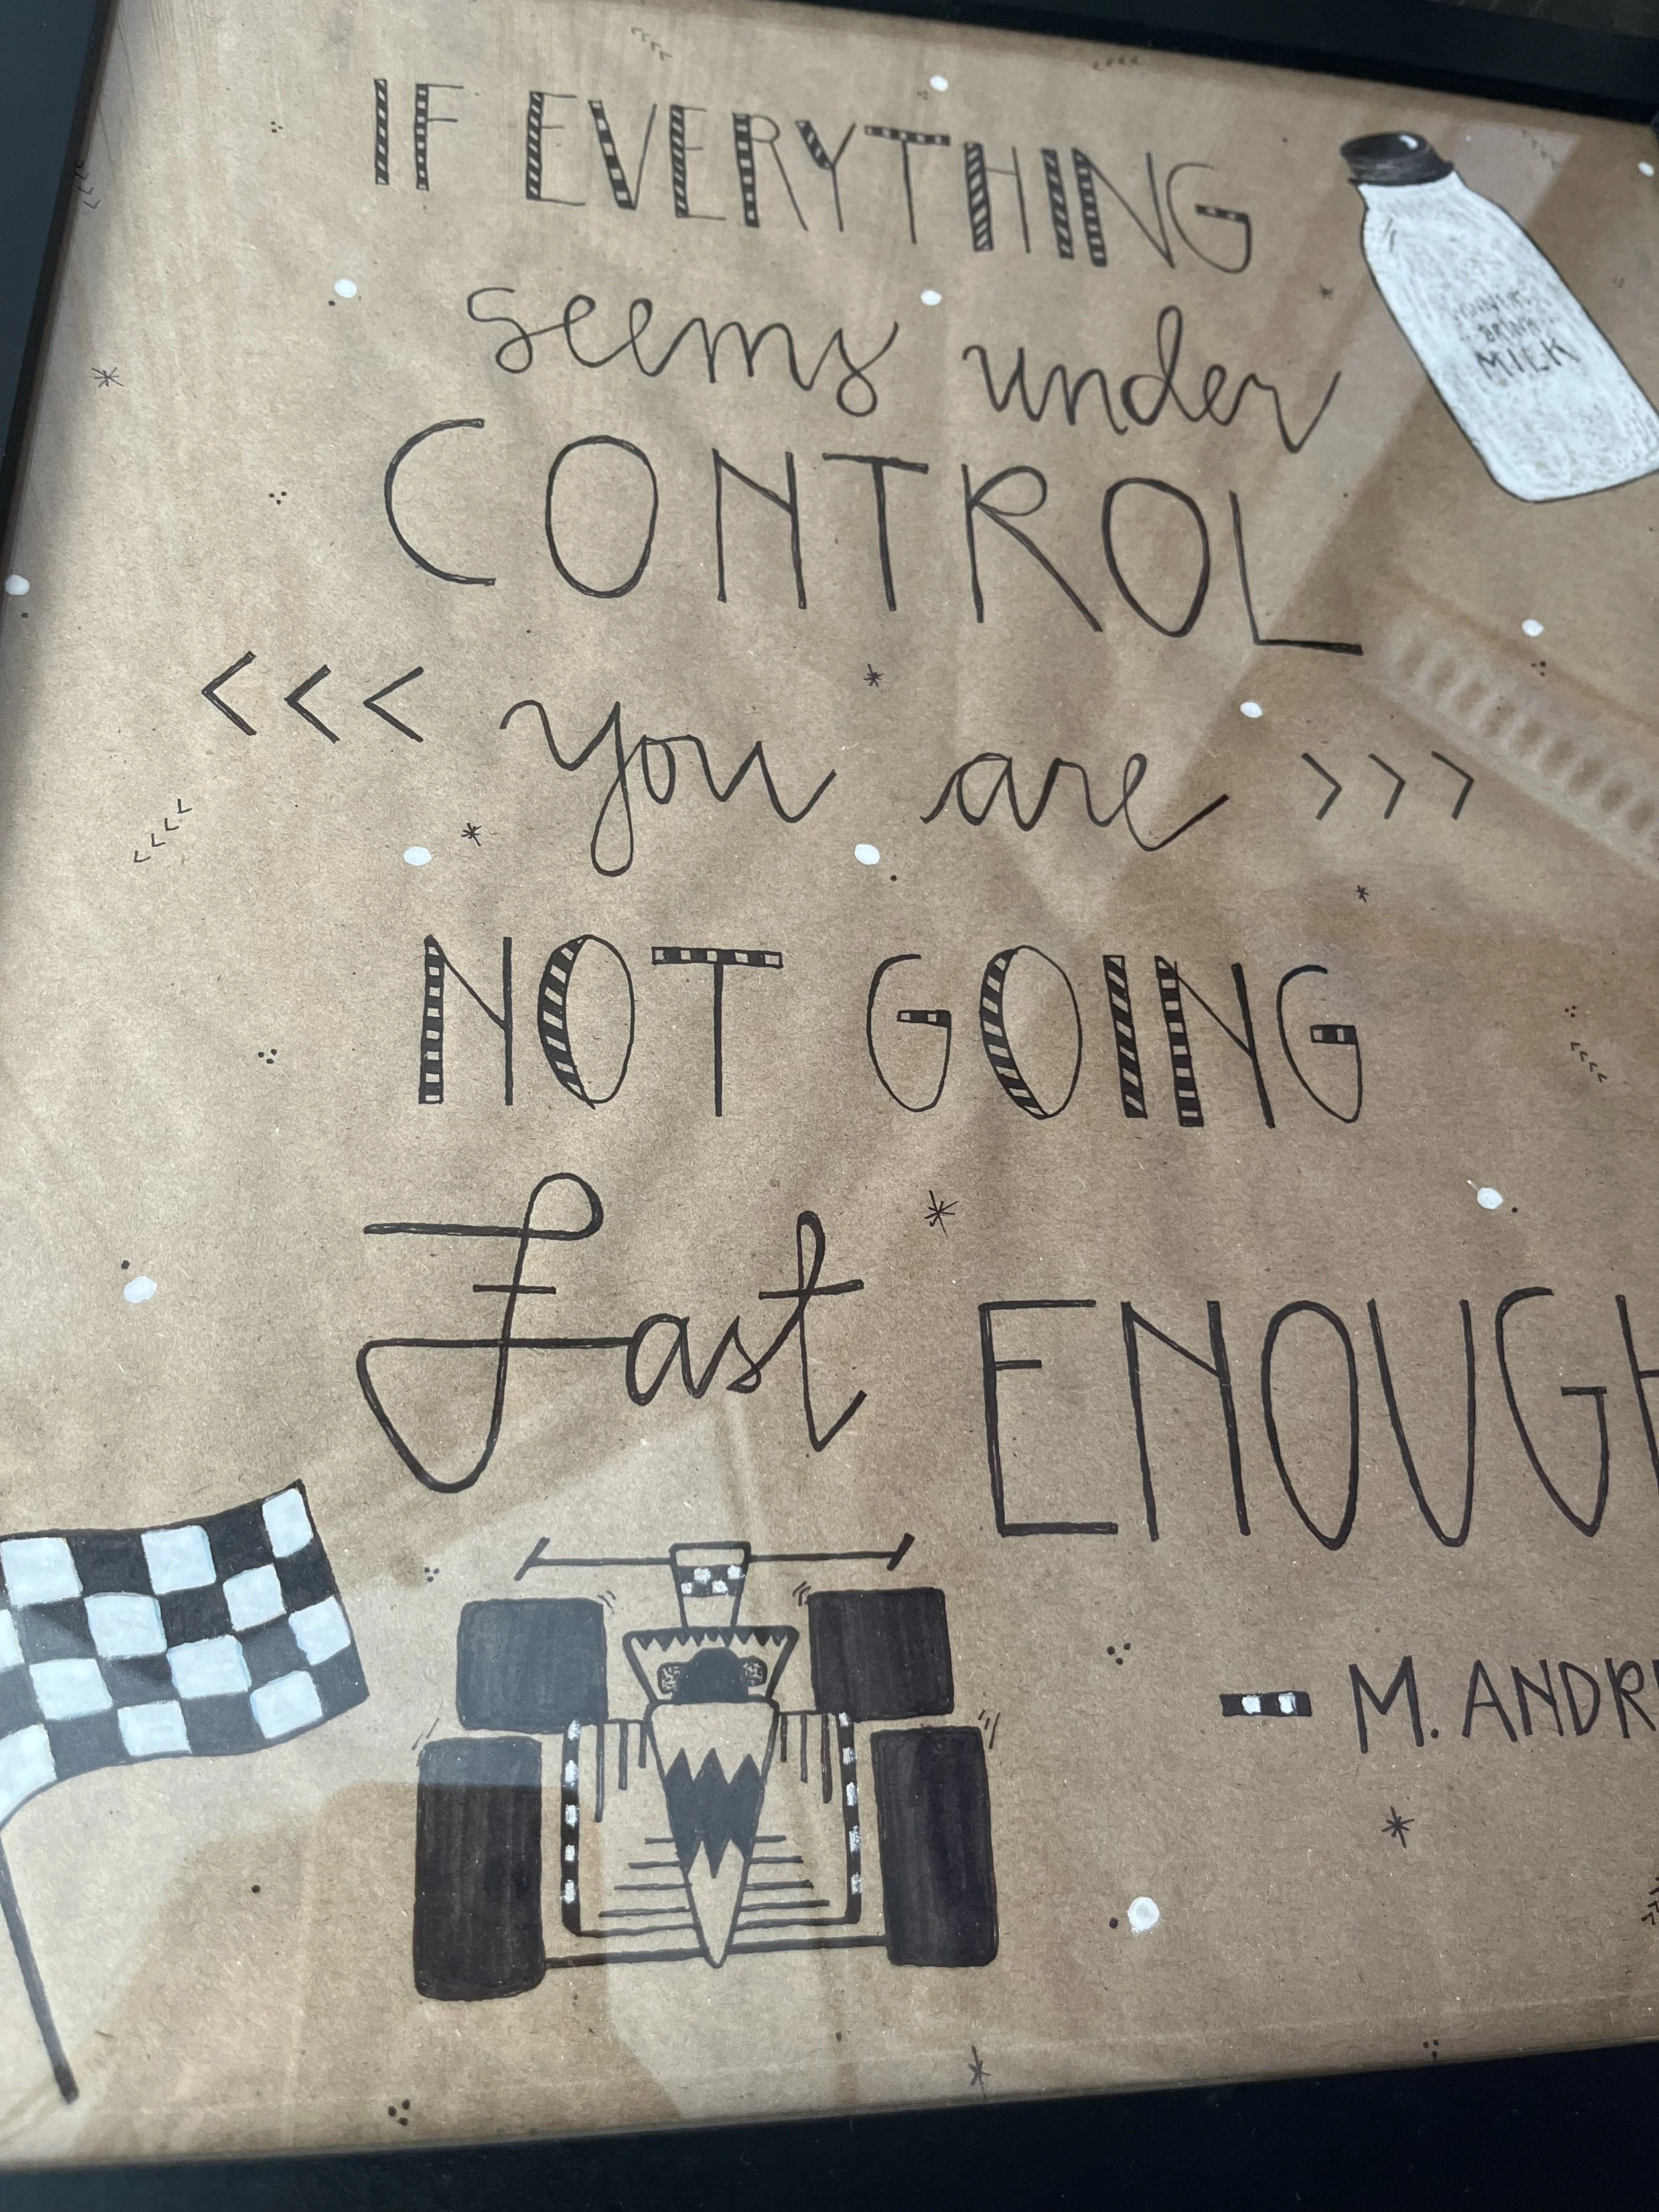 IF EVERYTHING
seems under
CONTROL
<<< you are >>>
NOT GOING
Fast ENOUGH
- M. ANDR
WINNERS
DRINK
MILK